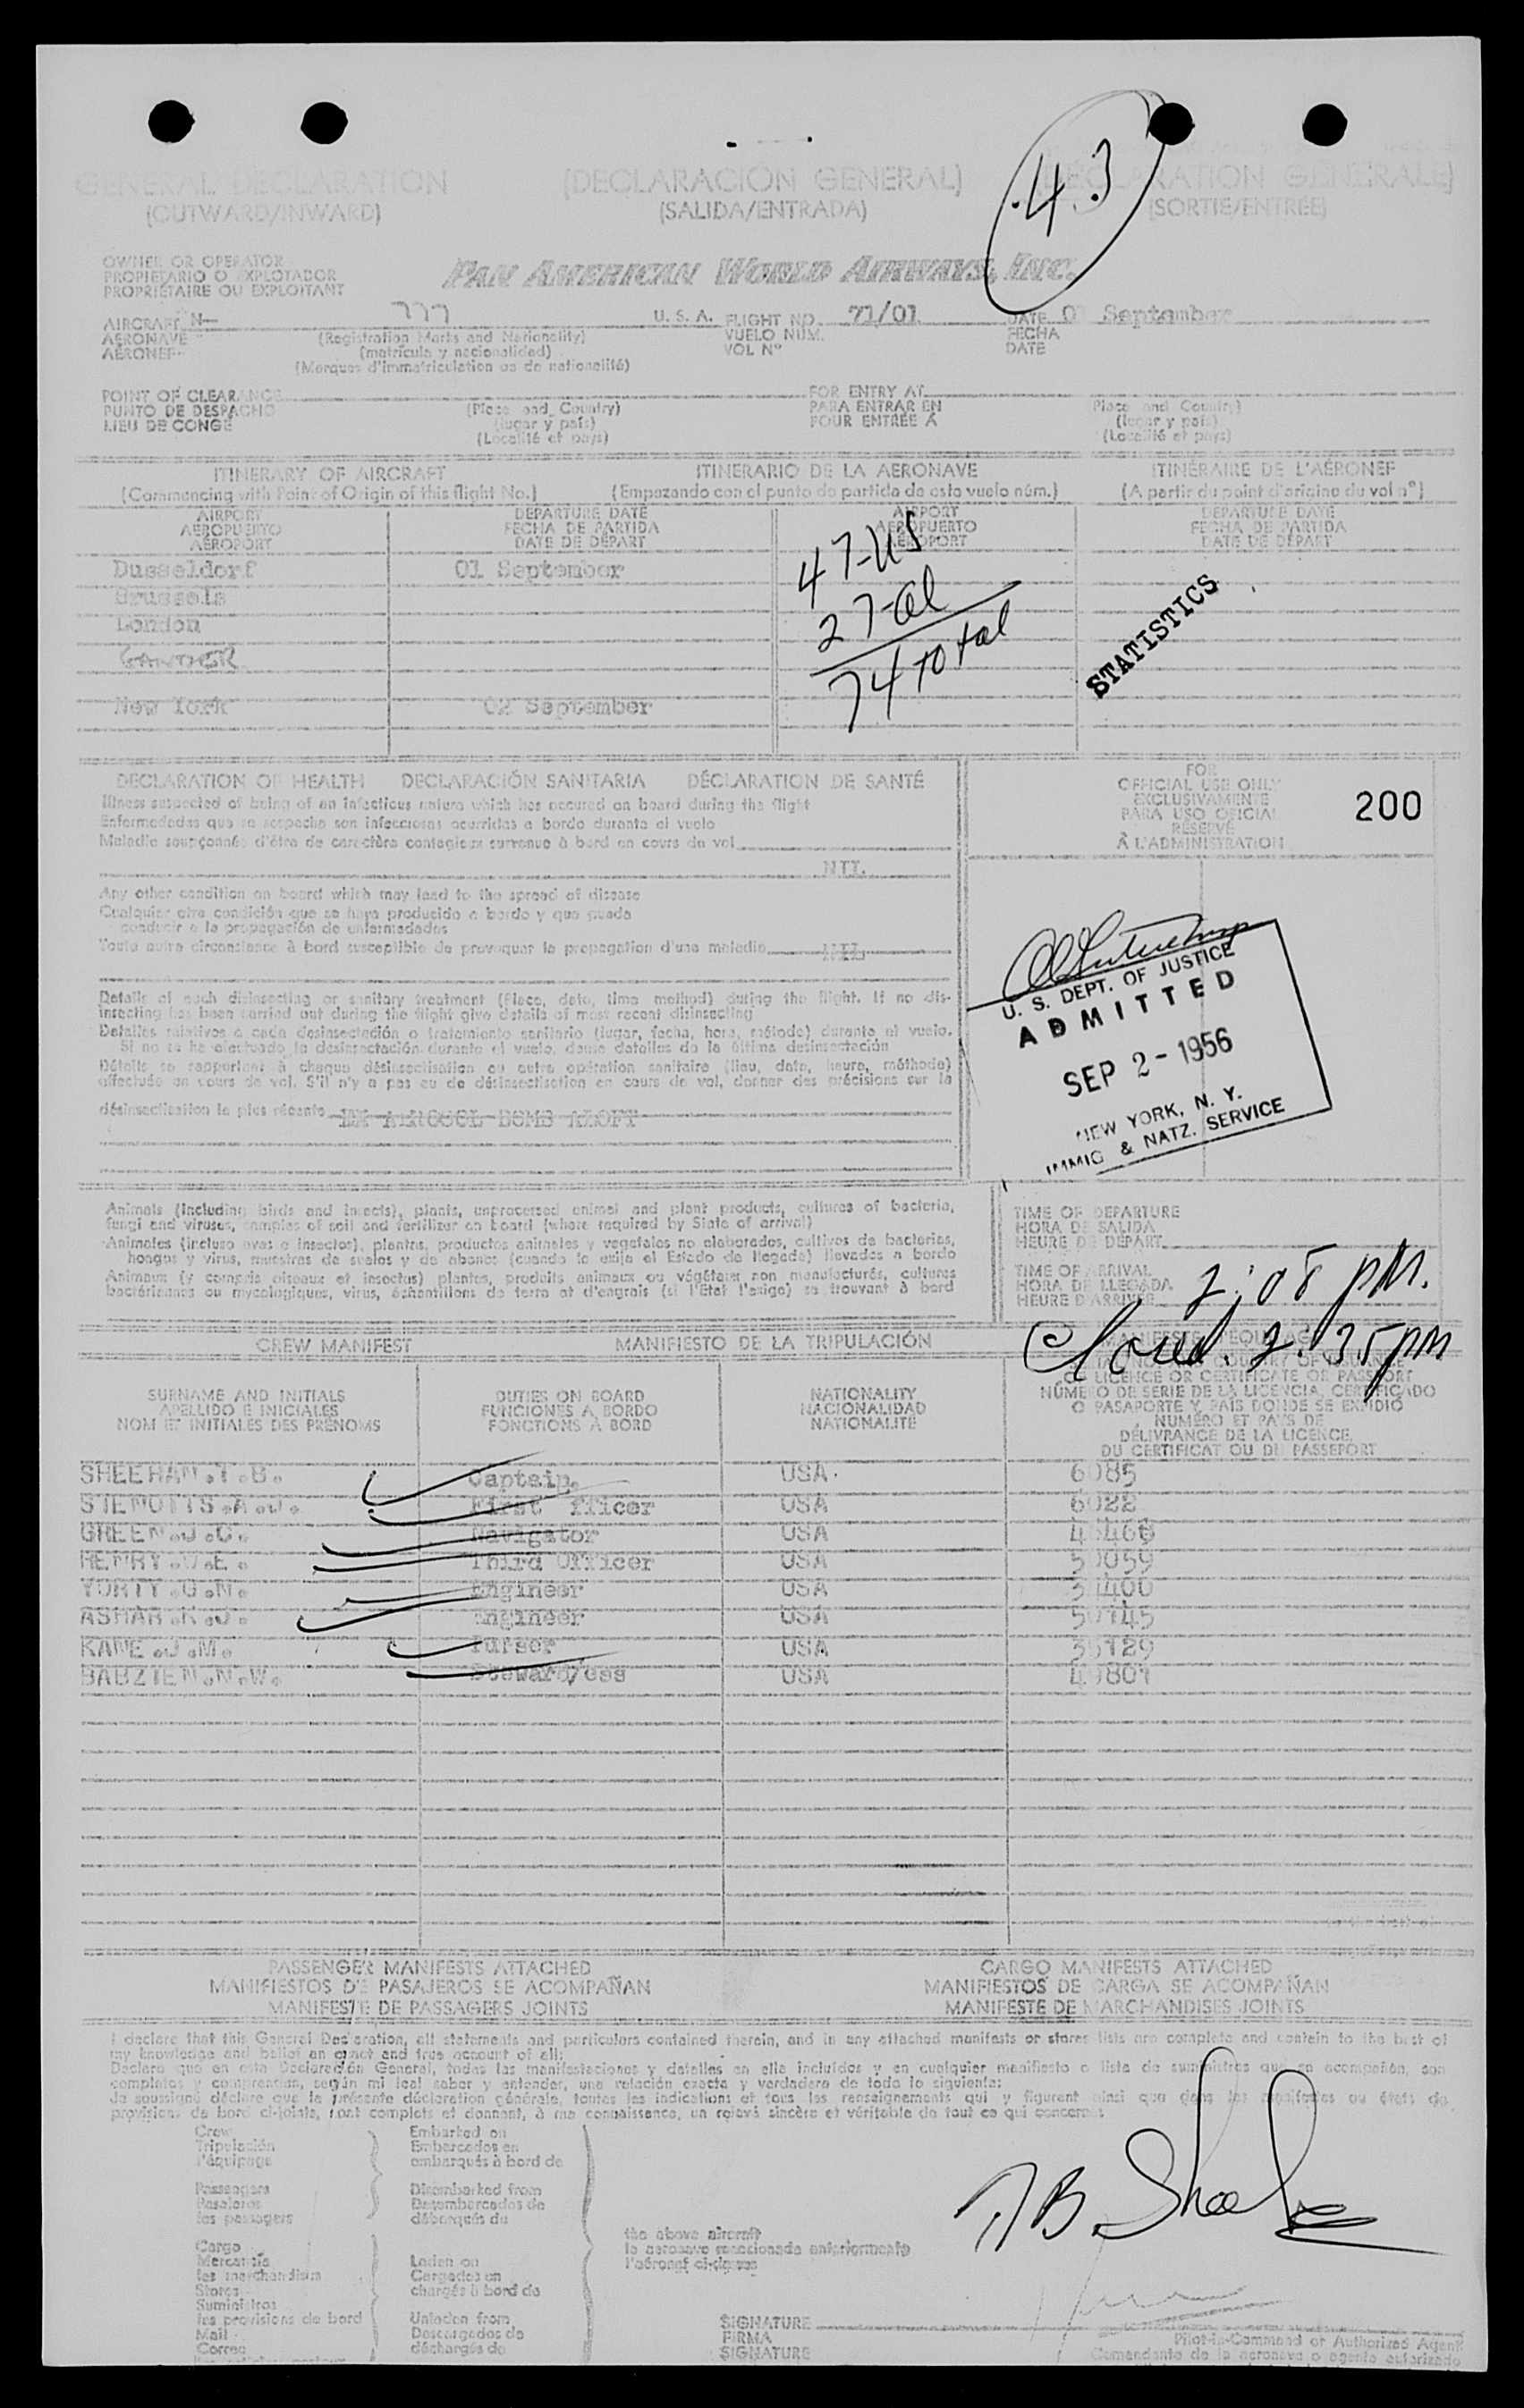 .43
GENERAL DECLARATION (DECLARACION GENERAL) (DÉCLARATION GENERALE)
(OUTWARD/INWARD) (SALIDA/ENTRADA) (SORTIE/ENTRÉE)
OWNER OR OPERATOR
PROPIETARIO O EXPLOTADOR
PROPRIÉTAIRE OU EXPLOITANT
PAN AMERICAN WORLD AIRWAYS, INC.
AIRCRAFT N— 777 U. S. A. FLIGHT NO. 71/01 DATE 01 September
AERONAVE (Registration Marks and Nationality) VUELO NÚM. FECHA
AÉRONEF (matrícula y nacionalidad) VOL Nº DATE
(Marques d'immatriculation ou de nationalité)
POINT OF CLEARANCE FOR ENTRY AT
PUNTO DE DESPACHO (Place and Country) PARA ENTRAR EN (Place and Country)
LIEU DE CONGÉ (lugar y país) POUR ENTRÉE À (lugar y país)
(Localité et pays) (Localité et pays)
ITINERARY OF AIRCRAFT ITINERARIO DE LA AERONAVE ITINÉRAIRE DE L'AÉRONEF
(Commencing with Point of Origin of this flight No.) (Empezando con el punto de partida de este vuelo núm.) (A partir du point d'origine du vol nº)
AIRPORT DEPARTURE DATE AIRPORT DEPARTURE DATE
AEROPUERTO FECHA DE PARTIDA AEROPUERTO FECHA DE PARTIDA
AÉROPORT DATE DE DÉPART AÉROPORT DATE DE DÉPART
Dusseldorf 01 September
Brussels
London
GANDER
New York 02 September
47-US
27-al
74 total
STATISTICS
DECLARATION OF HEALTH DECLARACIÓN SANITARIA DÉCLARATION DE SANTÉ
Illness suspected of being of an infectious nature which has occured on board during the flight
Enfermedades que se sospecha son infecciosas ocurridas a bordo durante el vuelo
Maladie soupçonnée d'être de caractère contagieux survenue à bord en cours de vol
NIL.
Any other condition on board which may lead to the spread of disease
Cualquier otra condición que se haya producido a bordo y que pueda
conducir a la propagación de enfermedades
Toute autre circonstance à bord susceptible de provoquer la propagation d'une maladie NIL.
Details of each disinsecting or sanitary treatment (place, date, time method) during the flight. If no dis-
insecting has been carried out during the flight give details of most recent disinsecting
Detalles relativos a cada desinsectación o tratamiento sanitario (lugar, fecha, hora, método) durante el vuelo.
Si no se ha efectuado la desinsectación durante el vuelo, dense detalles de la última desinsectación
Détails se rapportant à chaque désinsectisation ou autre opération sanitaire (lieu, date, heure, méthode)
effectuée en cours de vol. S'il n'y a pas eu de désinsectisation en cours de vol, donner des précisions sur la
désinsectisation la plus récente AEROSOL BOMB ALOFT
FOR
OFFICIAL USE ONLY
EXCLUSIVAMENTE
PARA USO OFICIAL
RÉSERVÉ
À L'ADMINISTRATION
200
U. S. DEPT. OF JUSTICE
ADMITTED
SEP 2 - 1956
NEW YORK, N. Y.
IMMIG & NATZ. SERVICE
Animals (including birds and insects), plants, unprocessed animal and plant products, cultures of bacteria,
fungi and viruses, samples of soil and fertilizer on board (where required by State of arrival)
Animales (incluso aves e insectos), plantas, productos animales y vegetales no elaborados, cultivos de bacterias,
hongos y virus, muestras de suelos y de abonos (cuando lo exija el Estado de llegada) llevados a bordo
Animaux (y compris oiseaux et insectes) plantes, produits animaux ou végétaux non manufacturés, cultures
bactériennes ou mycologiques, virus, échantillons de terre et d'engrais (si l'État l'exige) se trouvant à bord
TIME OF DEPARTURE
HORA DE SALIDA
HEURE DE DÉPART
TIME OF ARRIVAL
HORA DE LLEGADA
HEURE D'ARRIVÉE
2:05 pm.
2:35 pm
CREW MANIFEST MANIFIESTO DE LA TRIPULACIÓN
SURNAME AND INITIALS DUTIES ON BOARD NATIONALITY LICENCE OR CERTIFICATE OR PASSPORT
APELLIDO E INICIALES FUNCIONES A BORDO NACIONALIDAD NÚMERO DE SERIE DE LA LICENCIA, CERTIFICADO
NOM ET INITIALES DES PRÉNOMS FONCTIONS À BORD NATIONALITÉ O PASAPORTE Y PAÍS DONDE SE EXPIDIÓ
NUMÉRO ET PAYS DE
DÉLIVRANCE DE LA LICENCE,
DU CERTIFICAT OU DU PASSEPORT
SHEEHAN.T.B. Captain. USA. 6085
A.J. First Officer USA 6022
GREEN.J.C. Navigator USA
HENRY. E. Third Officer USA 50059
G.N. Engineer USA
ASHAR.K.J. Engineer USA
KANE.J.M. Purser USA
BABZIEN.N.W. Steward/ess USA
PASSENGER MANIFESTS ATTACHED CARGO MANIFESTS ATTACHED
MANIFIESTOS DE PASAJEROS SE ACOMPAÑAN MANIFIESTOS DE CARGA SE ACOMPAÑAN
MANIFESTE DE PASSAGERS JOINTS MANIFESTE DE MARCHANDISES JOINTS
I declare that this General Declaration, all statements and particulars contained therein, and in any attached manifests or stores lists are complete and contain to the best of
my knowledge and belief an exact and true account of all:
Declaro que en esta Declaración General, todas las manifestaciones y detalles en ella incluidos y en cualquier manifiesto o lista de suministros que se acompañan, son
completos y comprenden, según mi leal saber y entender, una relación exacta y verdadera de todo lo siguiente:
de soussigné déclare que la présente déclaration générale, toutes les indications et tous les renseignements qui y figurent ainsi que dans les manifestes ou états de
provisions de bord ci-joints, sont complets et donnent, à ma connaissance, un relevé sincère et véritable de tout ce qui concerne:
Crew Embarked on
Tripulación Embarcados en
l'équipage embarqués à bord de
Passengers Disembarked from
Pasajeros Desembarcados de
les passagers débarqués du
the above aircraft
la aeronave mencionada anteriormente
l'aéronef ci-dessus
Cargo
Mercancía Laden on
les marchandises Cargados en
Stores chargés à bord de
Suministros
les provisions de bord Unladen from
Mail Descargados de
Correo déchargés de
T.B. Sheehan
SIGNATURE
FIRMA Pilot-in-Command or Authorized Agent
SIGNATURE Comandante de la aeronave o agente autorizado